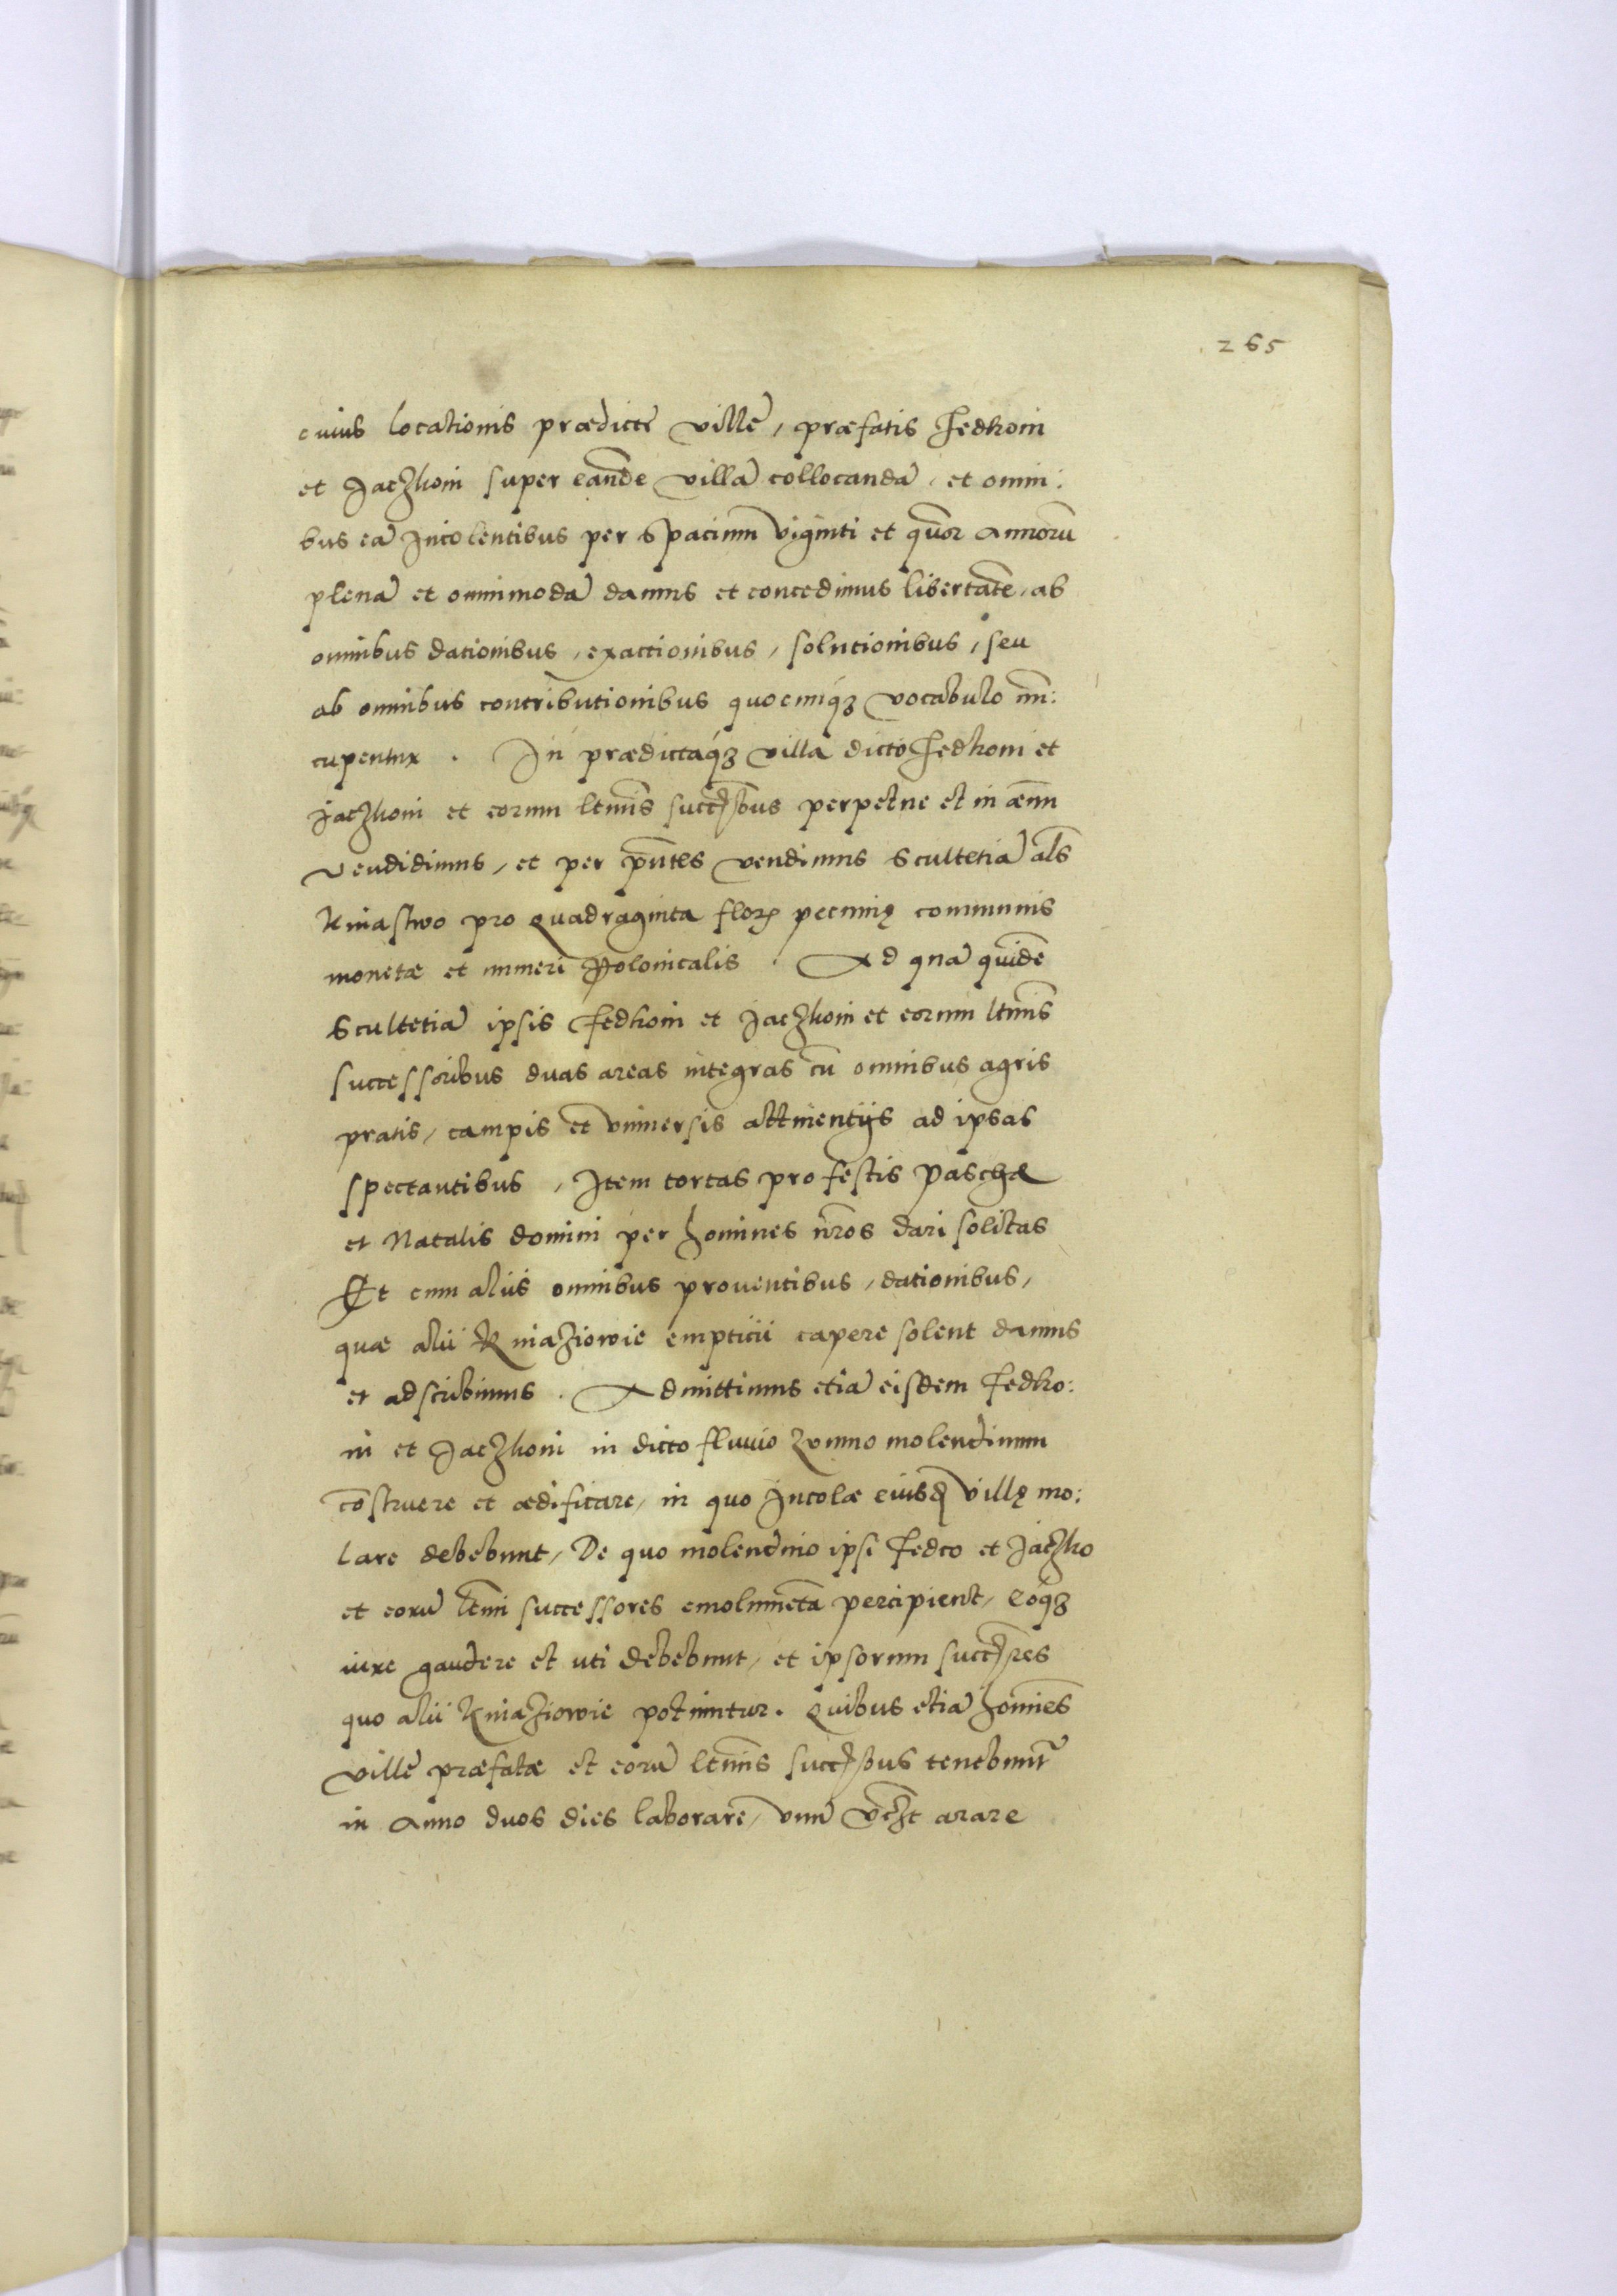 265
cuius locationis prædictę villę, præfatis Fedkoni
et Jaczkoni super eandē villā collocandā, et omni:
bus eā Incolentibus per Spacium viginti et quor Annorū
plenā et omnimodā damus et concedimus libertatē, ab
omnibus dationibus, exactionibus, solutionibus, seu
ab omnibus contributionibus quocunq3 vocabulo nū:
cupentur. In prædictaq3 villa dicto Fedkoni et
Jaczkoni et eorum ltīmis succēsībus perpetue et in æūm
vendidimus, et per pūtes vendimus Scultetiā āls
Kniastwo pro Quadraginta florꝭ pecunię communis
monetæ et numeri Polonicalis. Ad quā quidē
Scultetiā ipsis Fedkoni et Jaczkoni et eorum ltīmis
successoribus duas areas integras cū omnibus agris
pratis, campis et vniuersis attinentijs ad ipsas
spectantibus, Item tortas pro festis Paschæ
et Natalis domini per homines nr̄os dari solitas
Et cum aliis omnibus prouentibus, dationibus,
quæ alii Kniaziowie empticii capere solent damus
et adscribimus. Admittimus etiā eisdem Fedko:
ni et Jaczkoni in dicto fluuio Zomno molendinum
cōstruere et ædificare, in quo Incolæ eiusđ villę mo:
lare debebunt, De quo molendino ipsi Fedco et Jaczko
et eorū ltīmi successores emolumēta percipient, eoq3
iure gaudere et uti debebunt, et ipsorum succēsores
quo alii Kniaziowie potiuntur. Quibus etiā hominēs
villę præfatæ et eorū ltīmis succēsībus tenebunt̄
in Anno duos dies laborare, vnū arare